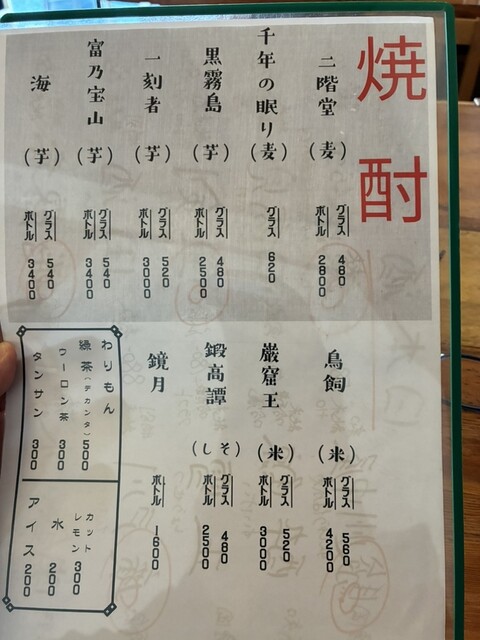 焼酎
二階堂(麦) グラス 480
ボトル 2800
千年の眠り(麦) グラス 620
黒霧島(芋) グラス 480
ボトル 2500
一刻者(芋) グラス 520
ボトル 3000
富乃宝山(芋) グラス 540
ボトル 3400
海(芋) グラス 540
ボトル 3400
鳥飼(米) グラス 560
ボトル 4200
巌窟王(米) グラス 520
ボトル 3000
鍛高譚(しそ) グラス 480
ボトル 2500
鏡月 ボトル 1600
わりもん
緑茶(デカンタ) 500
ウーロン茶 300
タンサン 300
カットレモン 300
水 200
アイス 200